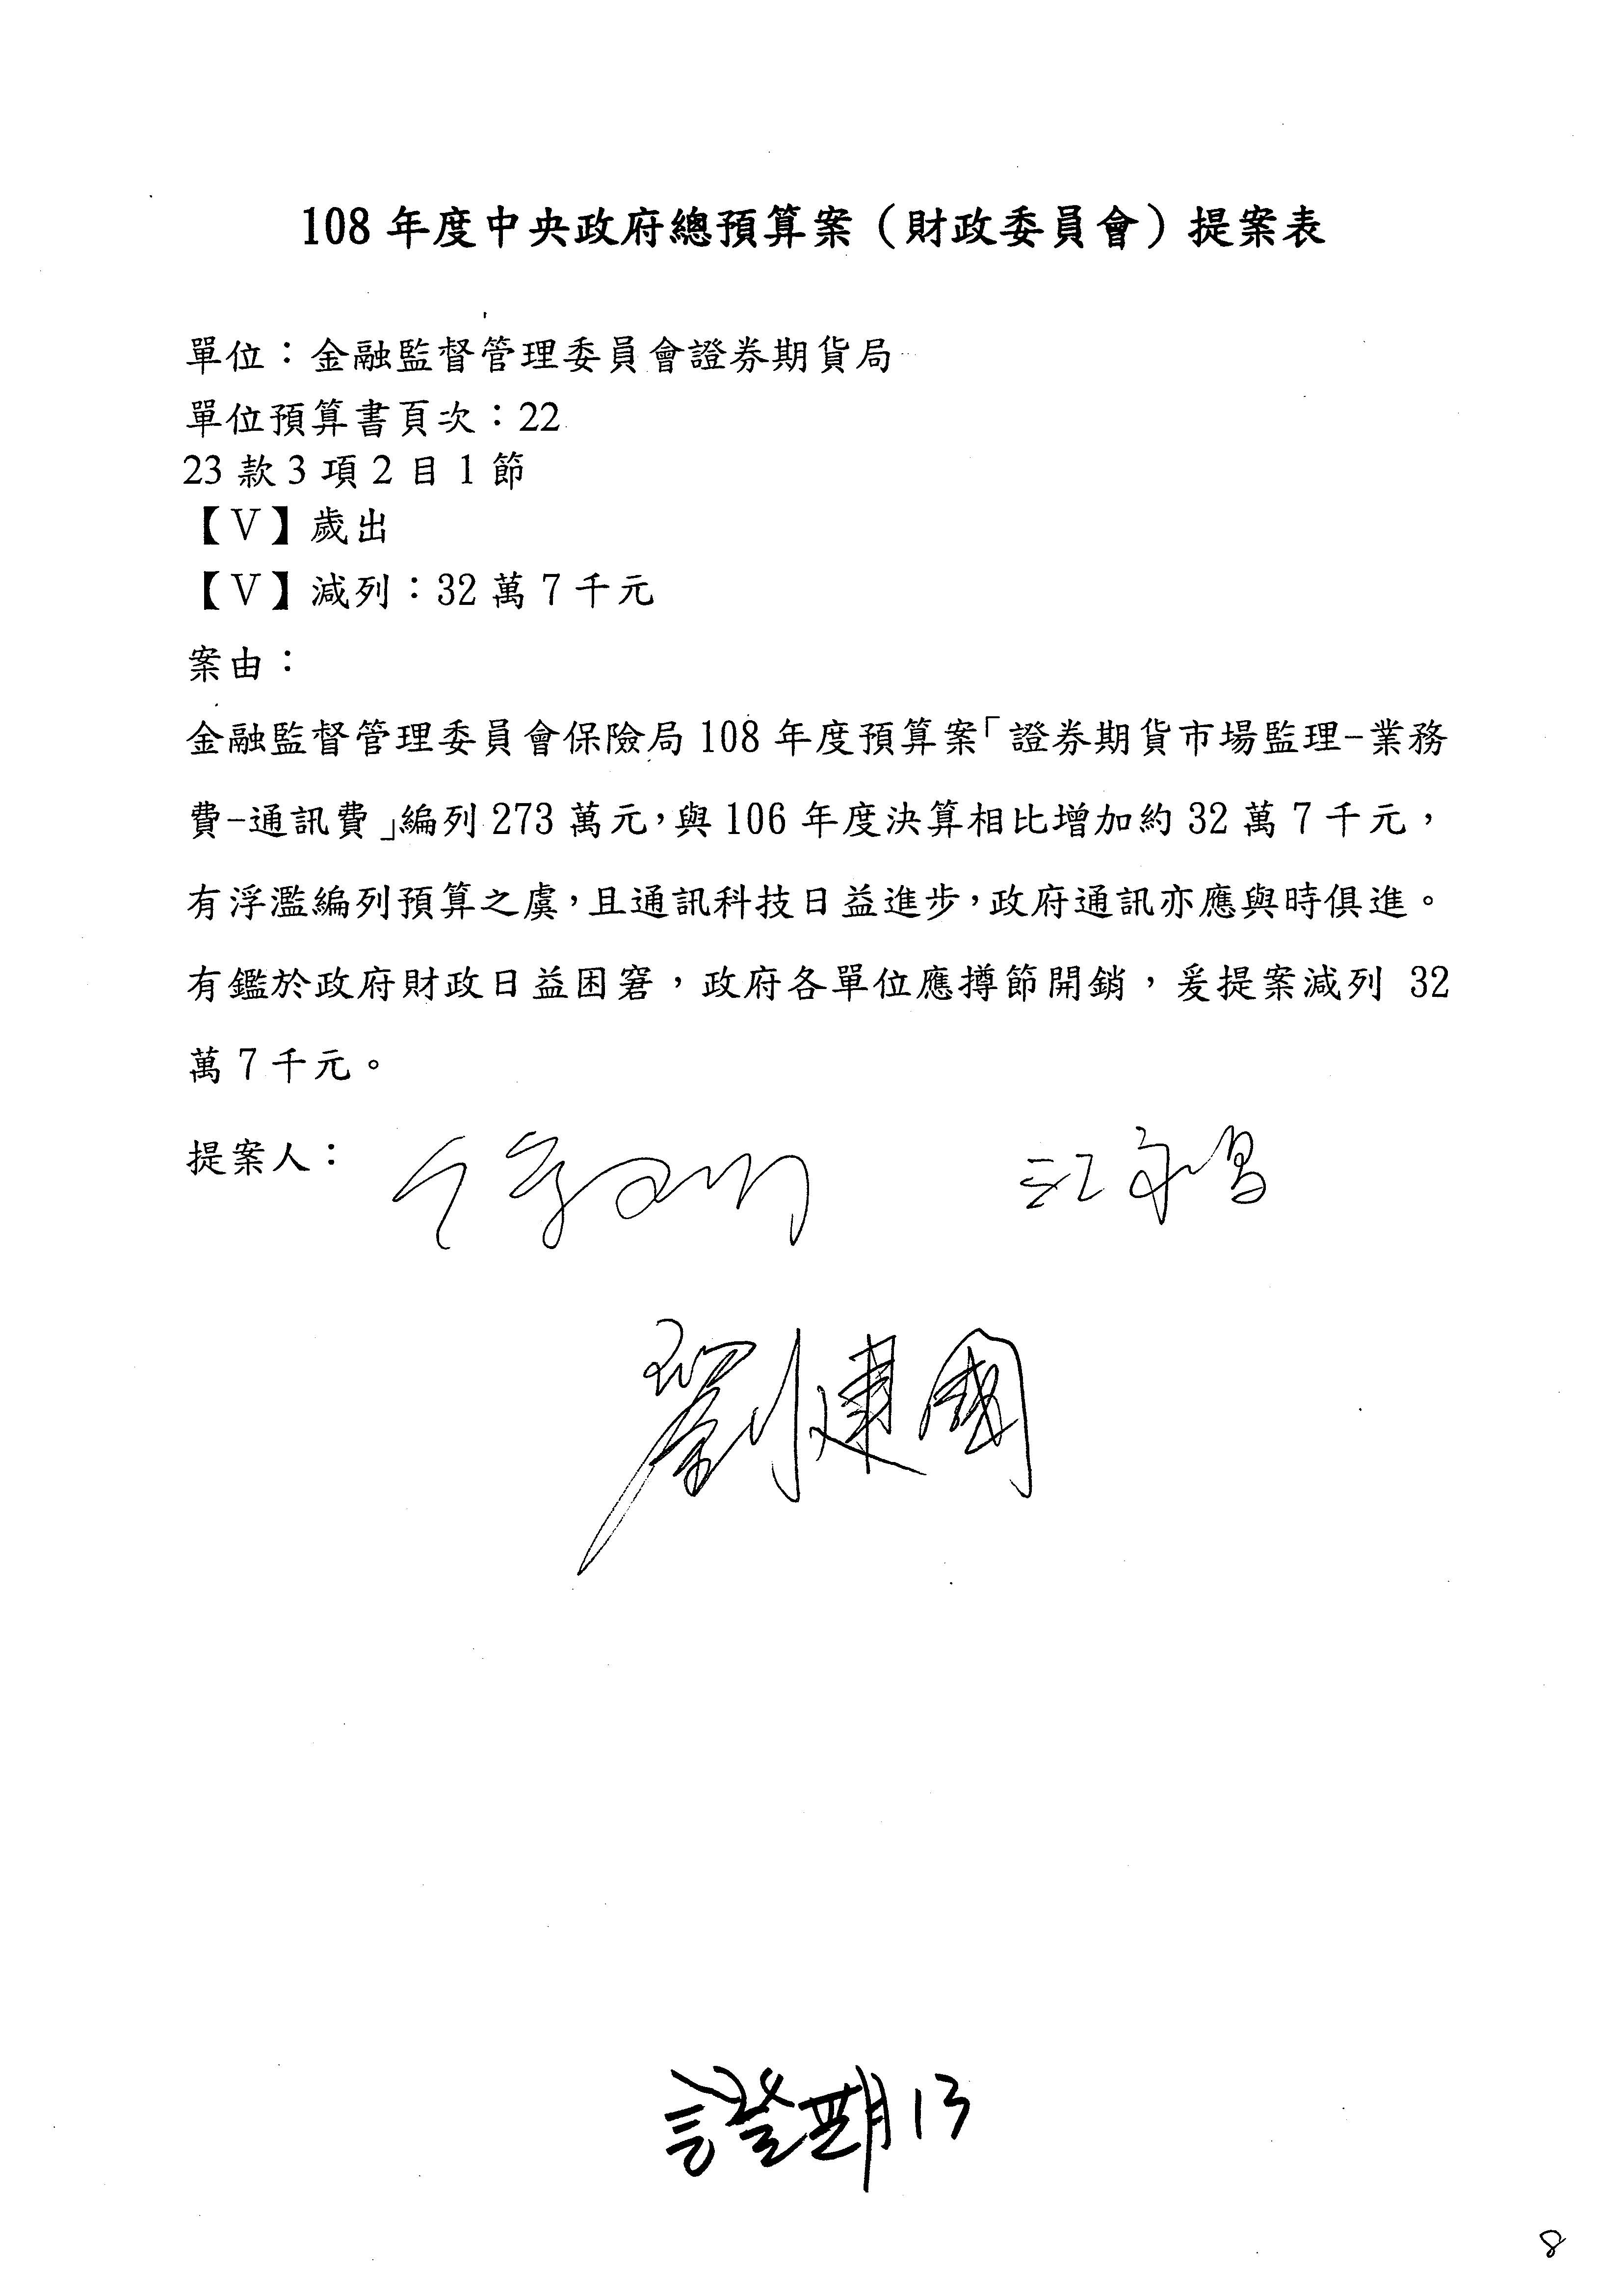 108 年度中央政府總預算案（財政委員會）提案表
單位：金融監督管理委員會證券期貨局
單位預算書頁次：22
23 款 3 項 2 目 1 節
【V】歲出
【V】減列：32 萬 7 千元
案由：
金融監督管理委員會保險局 108 年度預算案「證券期貨市場監理-業務
費-通訊費」編列 273 萬元，與 106 年度決算相比增加約 32 萬 7 千元，
有浮濫編列預算之虞，且通訊科技日益進步，政府通訊亦應與時俱進。
有鑑於政府財政日益困窘，政府各單位應撙節開銷，爰提案減列 32
萬 7 千元。
提案人： 江永昌
劉建國
證期 13
8